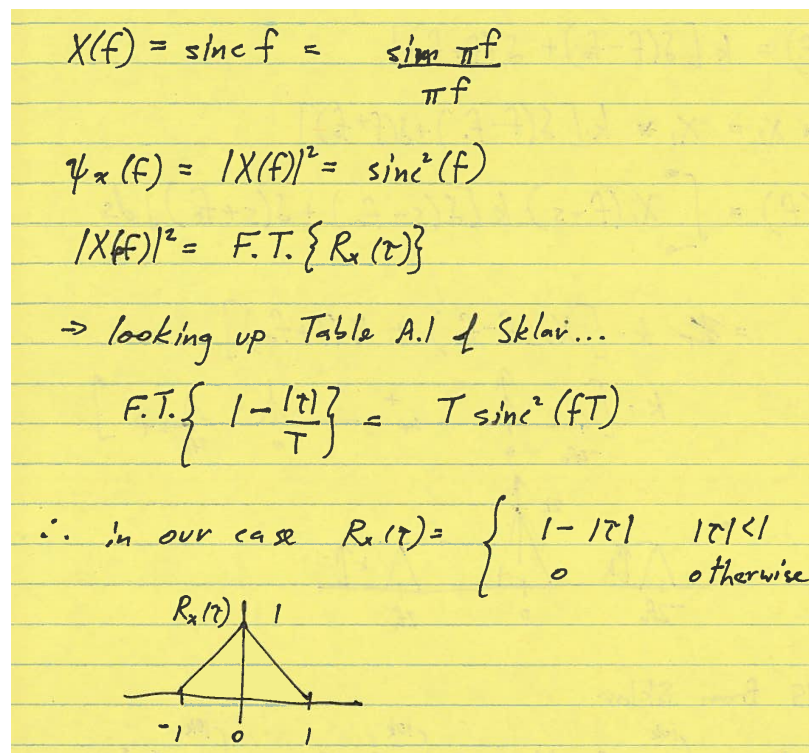 X(f) = sinc f = sin πf / πf
ψx(f) = |X(f)|² = sinc²(f)
|X(f)|² = F.T. { Rx(τ) }
⇒ looking up Table A.1 of Sklar...
F.T. { 1 - |t|/T } = T sinc²(fT)
∴ in our case Rx(τ) = { 1 - |τ| |τ|<1
0 otherwise
Rx(τ) 1
-1 0 1